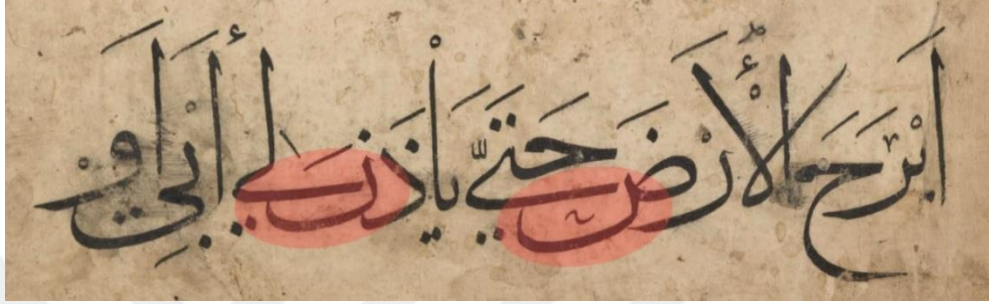 أَبْرَحَ الْأَرْضَ حَتَّى يَأْذَنَ لِي أَبِي أَوْ